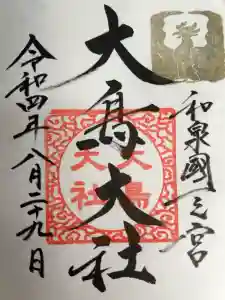 和泉國一之宮
大鳥大社
大鳥大社
令和四年八月二十九日